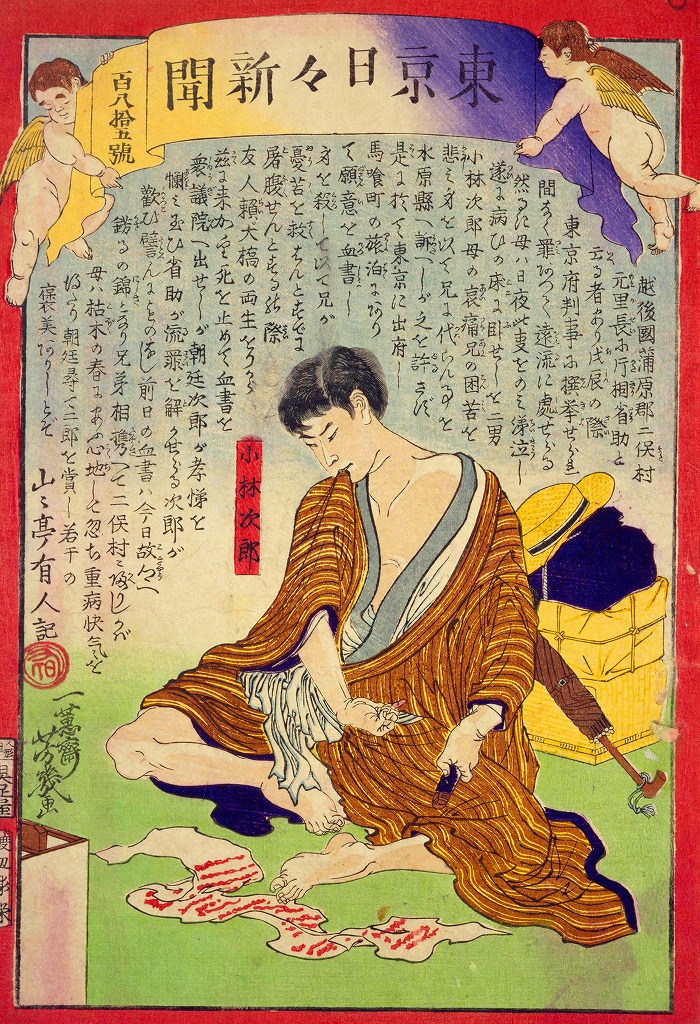 東京日々新聞
百八拾五號
越後國蒲原郡二俣村
元里長に片相省助と
云る者あり戊辰の際
東京府判事に撰挙せられ
間なく罪ありて遠流に処せらる
然るに母は日夜此事をのみ涕泣し
遂に病ひの床に臥せしを二男
小林次郎母の哀痛兄の困苦を
悲しみ身を以て兄に代らん事を
水原縣に訴へしが之を許さず
是に於て東京に出府し
馬喰町の旅泊にあり
て願意を血書し
身を殺して以て兄が
憂苦を救はんと
屠腹せんとする此際
友人頼大橋の両生
茲に来かゝり死を止めて血書を
衆議院へ出せしが朝廷次郎が孝悌を
憫ミ玉ひ省助が流罪を解かせらる次郎が
歓び譬んにものなし前日の血書ハ今日故へ
錺るの錦となり兄弟相携へて二俣村に帰りしかバ
母ハ枯木の春にあふ心地して忽ち重病快気を
得たり朝廷尋で二郎を賞し若干の
褒美ありしとぞ
山々亭有人記
小林次郎
一蕙齋芳幾画
具足屋
渡辺彫栄